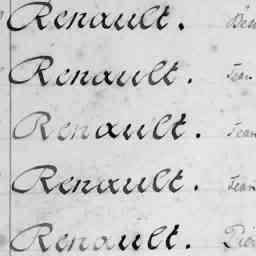 Renault.
Renault. Jean
Renault. Jean
Renault. Jean
Renault.